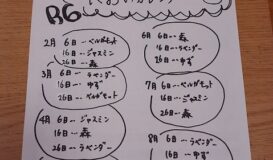 R6
2月 6日…ベルガモット
16日…ジャスミン
26日…森
3月 6日…ラベンダー
16日…ゆず
26日…ベルガモット
4月 6日…ジャスミン
16日…森
26日…ラベンダー
6月 6日…森
16日…ラベンダー
26日…ゆず
7月 6日…ベルガモット
16日…ジャスミン
26日…森
8月 6日…ラベンダー
16日…ゆず